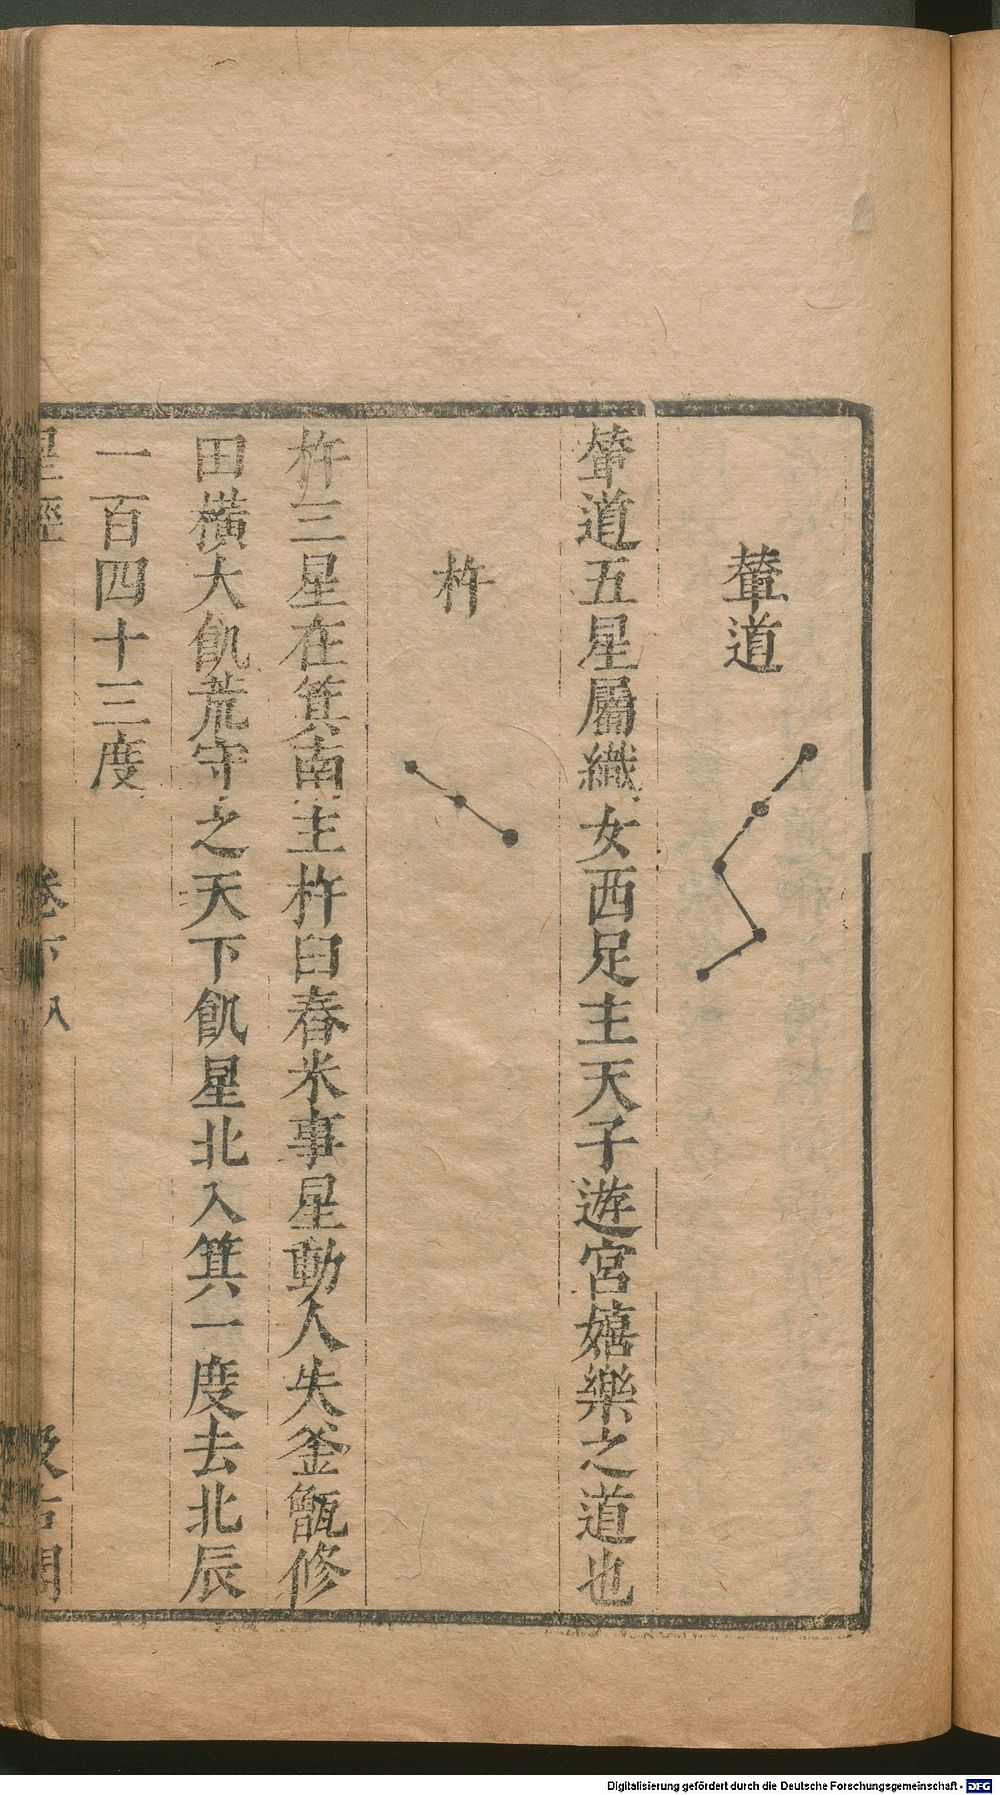 輦道
輦道五星屬織女西足主天子遊宮嬉樂之道也
杵
杵三星在箕南主杵臼舂米事星動人失釜甑修
田橫大飢荒守之天下飢星北入箕一度去北辰
一百四十三度
星經 卷下 八 汲古閣
Digitalisierung gefördert durch die Deutsche Forschungsgemeinschaft - DFG